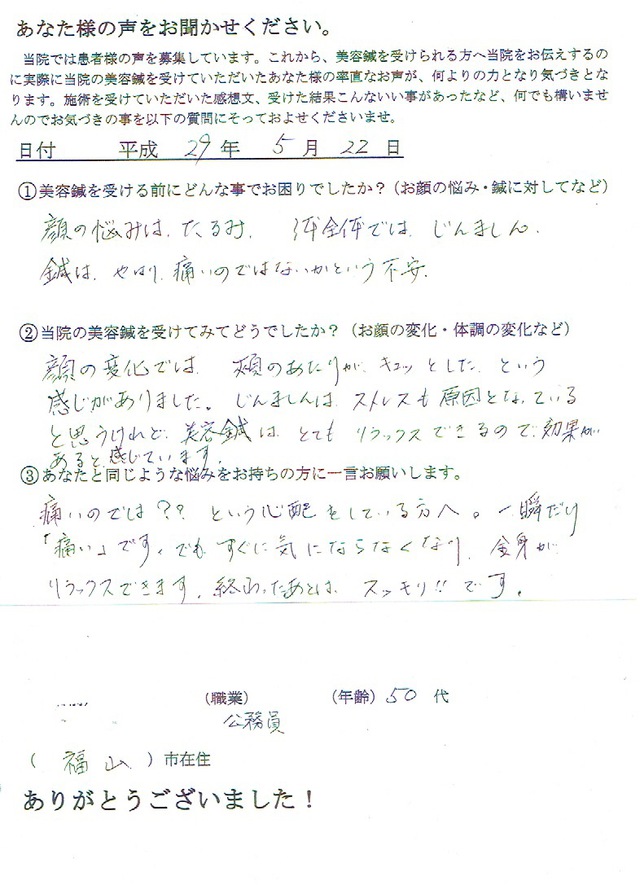 あなた様の声をお聞かせください。
当院では患者様の声を募集しています。これから、美容鍼を受けられる方へ当院をお伝えするの
に実際に当院の美容鍼を受けていただいたあなた様の率直なお声が、何よりの力となり気づきとな
ります。施術を受けていただいた感想文、受けた結果こんないい事があったなど、何でも構いませ
んのでお気づきの事を以下の質問にそっておよせくださいませ。
日付 平成 29 年 5 月 22 日
①美容鍼を受ける前にどんな事でお困りでしたか？（お顔の悩み・鍼に対してなど）
顔の悩みは、たるみ、 体全体では、じんましん.
鍼は、やはり、痛いのではないかという不安.
②当院の美容鍼を受けてみてどうでしたか？（お顔の変化・体調の変化など）
顔の変化では、頬のあたりが、キュッとした、という
感じがありました。じんましんは、ストレスも原因となっている
と思うけれど、美容鍼は、とてもリラックスできるので、効果が
あると感じています。
③あなたと同じような悩みをお持ちの方に一言お願いします。
痛いのでは？？という心配をしている方へ。一瞬だけ
「痛い」です。でも、すぐに気にならなくなり、全身が
リラックスできます。終わったあとは、スッキリ!!です。
（職業） （年齢）50 代
公務員
（ 福山 ）市在住
ありがとうございました！